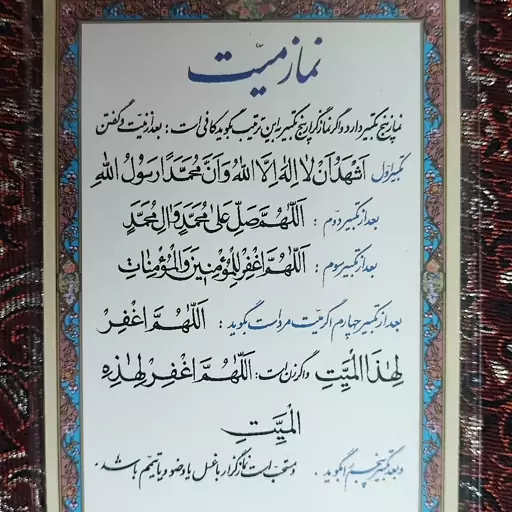 نماز میّت
نماز پنج تکبیر دارد و اگر نمازگزار پنج تکبیر به این ترتیب بگوید کافی است : بعد از نیت و گفتن
تکبیر اول اَشْهَدُ اَنْ لا اِلٰهَ اِلَّا اللهُ وَ اَنَّ مُحَمَّدًا رَسُولُ اللهِ
بعد از تکبیر دوّم : اَللّٰهُمَّ صَلِّ عَلىٰ مُحَمَّدٍ وَ الِ مُحَمَّدٍ
بعد از تکبیر سوم : اَللّٰهُمَّ اغْفِرْ لِلْمُؤْمِنینَ وَ الْمُؤْمِناتِ
بعد از تکبیر چهارم اگر میّت مرد است بگوید : اَللّٰهُمَّ اغْفِرْ
لِهٰذَا الْمَیِّتِ و اگر زن است : اَللّٰهُمَّ اغْفِرْ لِهٰذِهِ
الْمَیِّتِ
و بعد تکبیر پنجم را بگوید . و مستحب است نمازگزار با غسل یا وضو و یا تیمّم باشد .